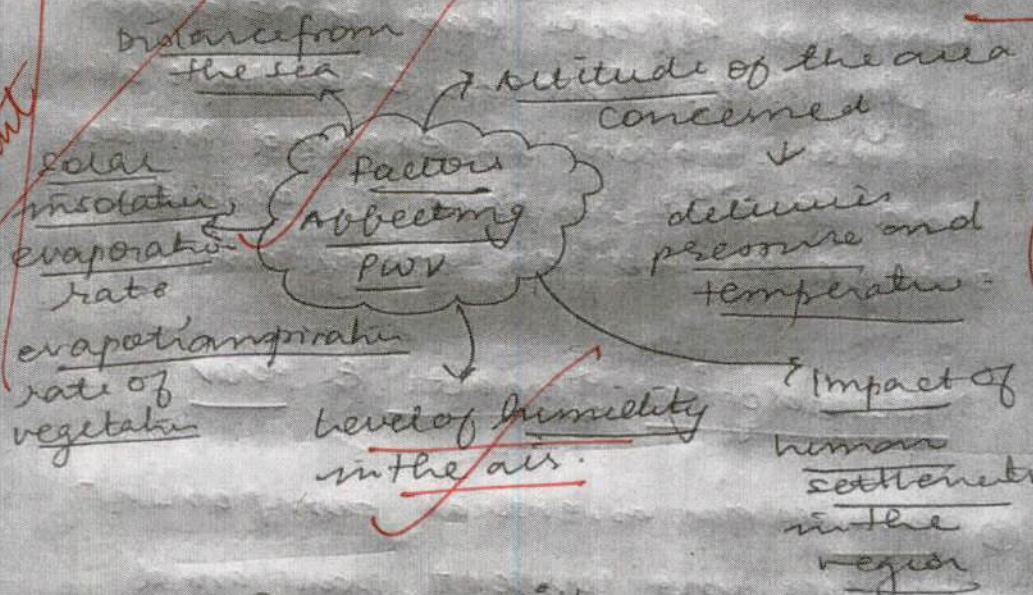 Distance from
the sea
Altitude of the area
concerned
↓
determines
pressure and
temperature.
Factors
Affecting
PWV
Solar
insolation,
evaporation
rate,
evapotranspiration
rate of
vegetation
Level of humidity
in the air.
Impact of
human
settlement
in the
region